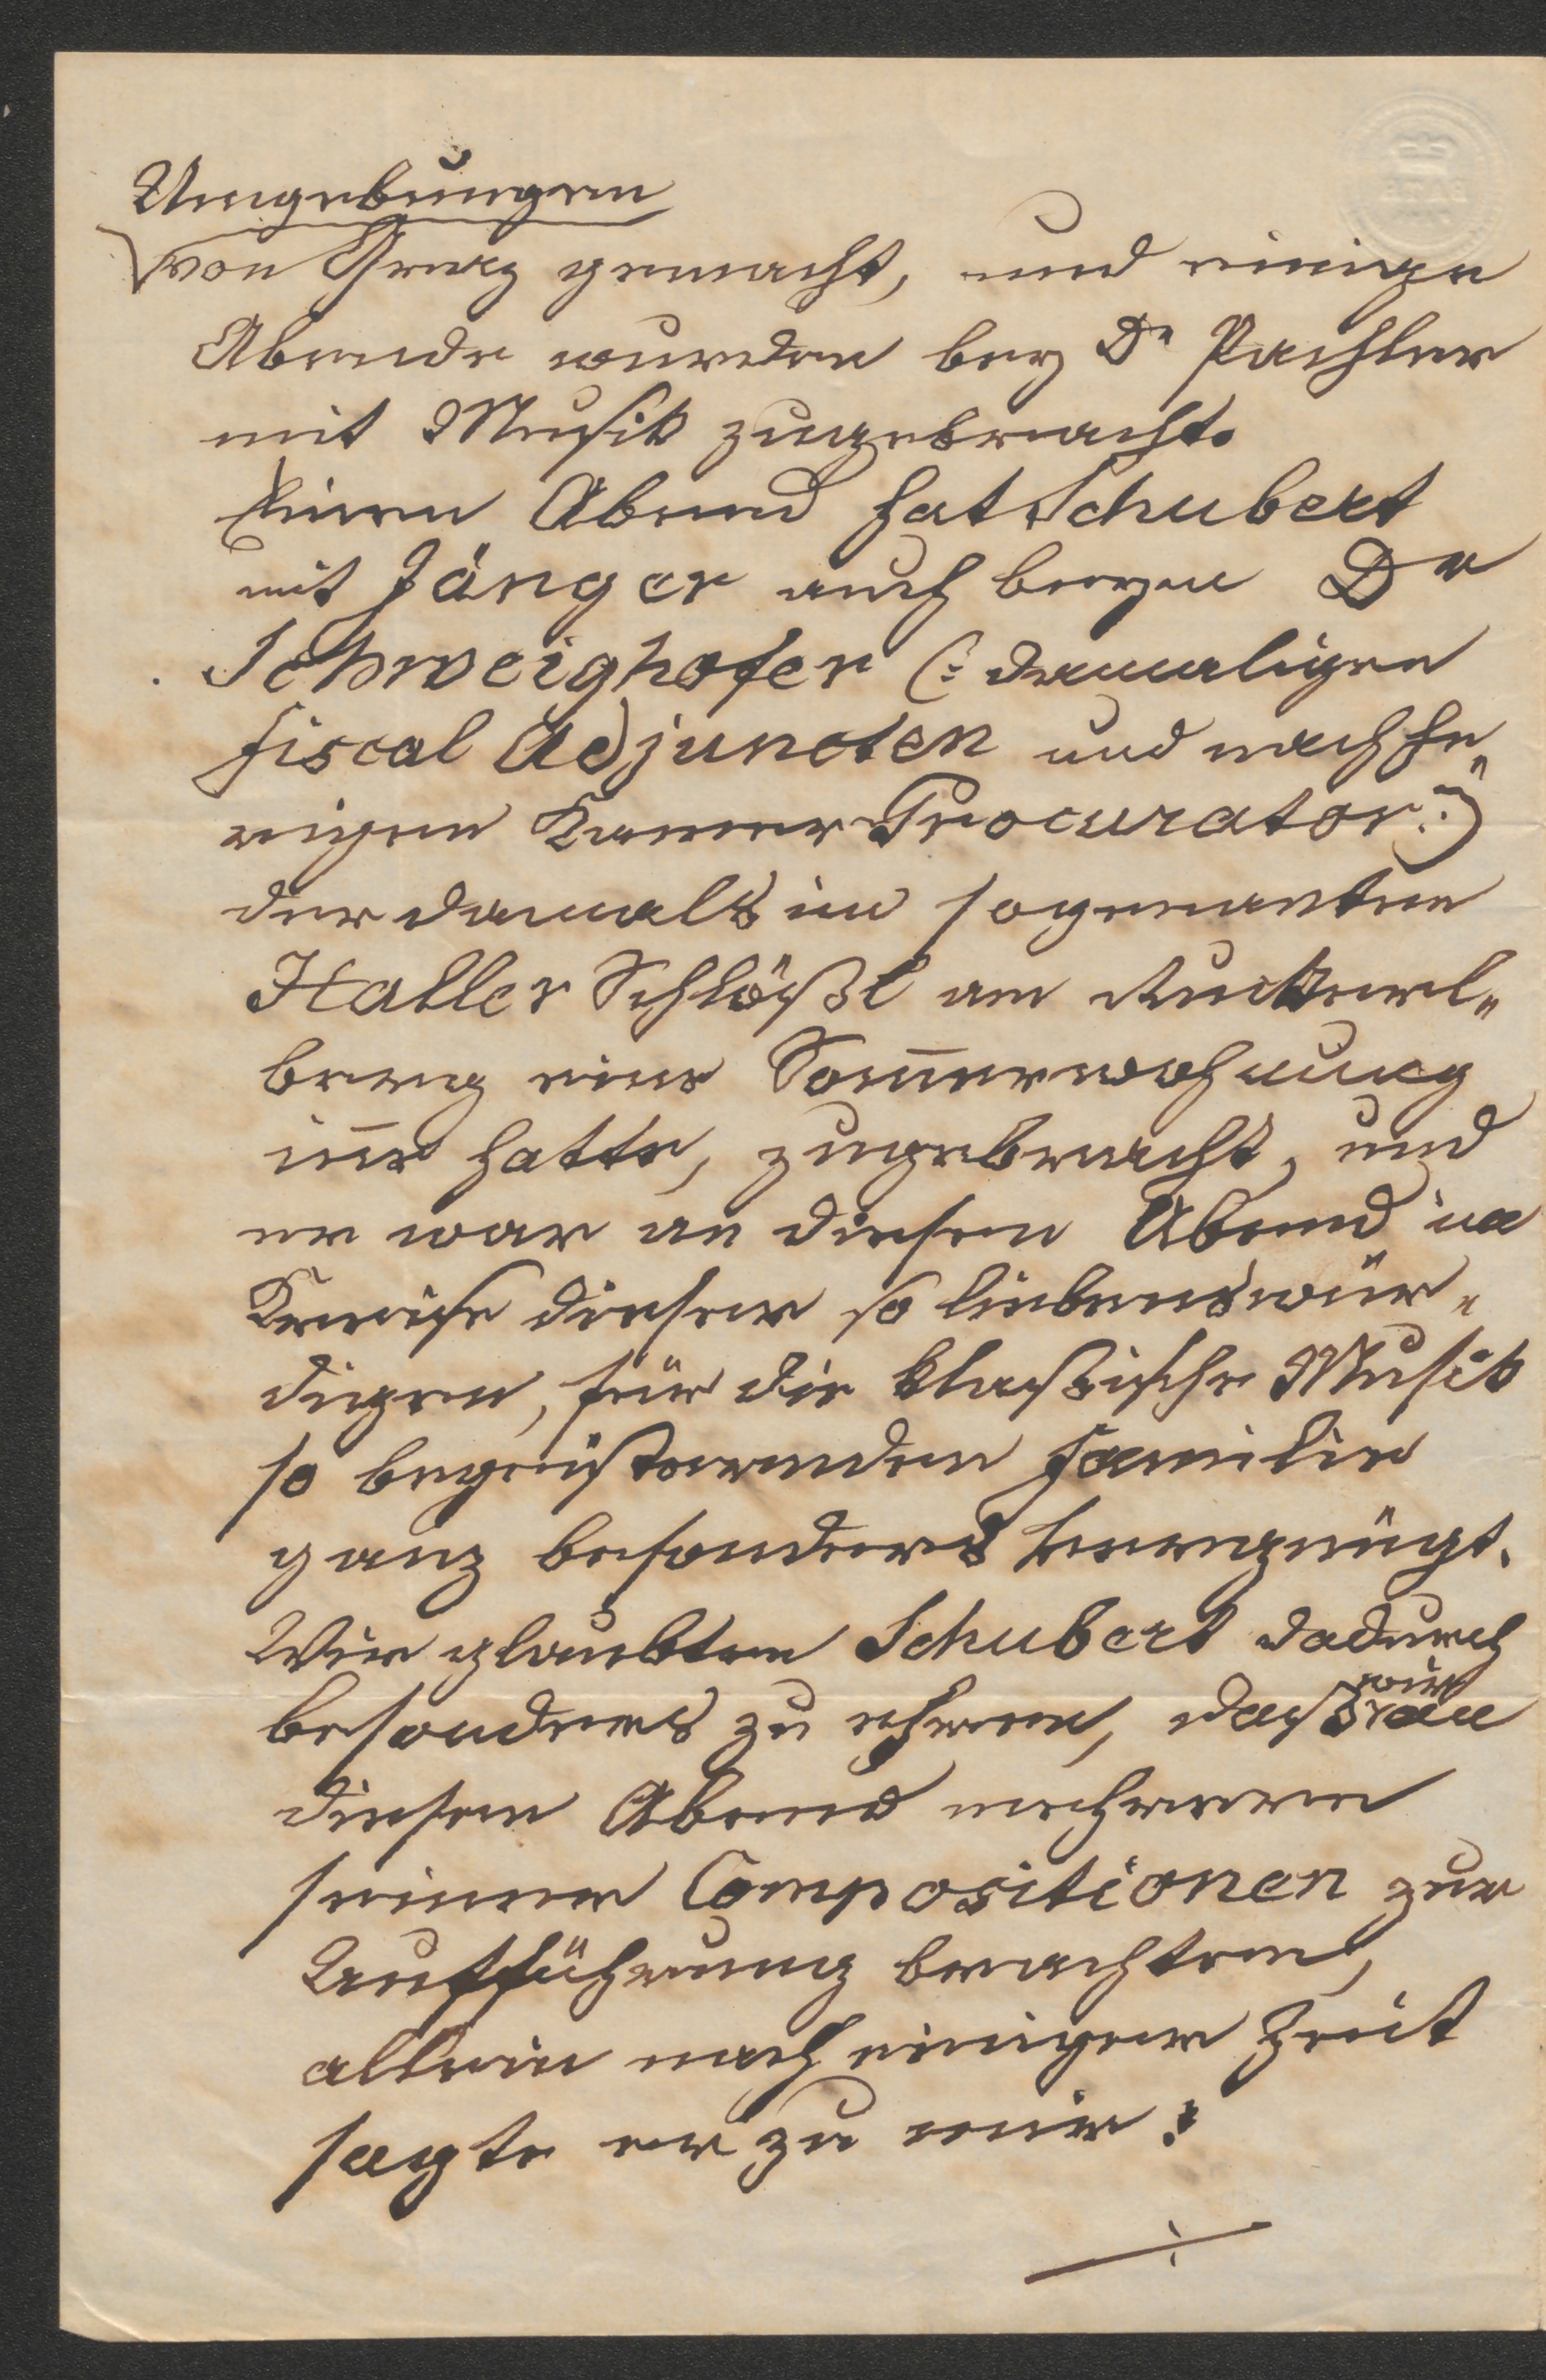 Umgebungen
von Graz gemacht, und einige
Abende wurden bey Dr Pachler
mit Musik zugebracht.
Einen Abend hat Schubert
mit Jänger auch beym Dr
Schweighofer (: damaligen
fiscal Adjuncten und nachhe„
rigen Kammer Procurator :)
der damals im sogenanten
Haller Schlößl am Ruckerl„
berg eine Som̅erwohnung
in̅e hatte, zugebracht, und
er war an diesem Abend im
Kreise dieser so liebenswür„
digen, für die klaßische Musik
so begeisternden Familie
ganz besonders vergnügt.
Wir glaubten Schubert dadurch
besonders zu ehren, daß wir an
diesem Abend mehrere
seiner Compositionen zur
Aufführung brachten,
allein nach einiger Zeit
sagte er zu mir: